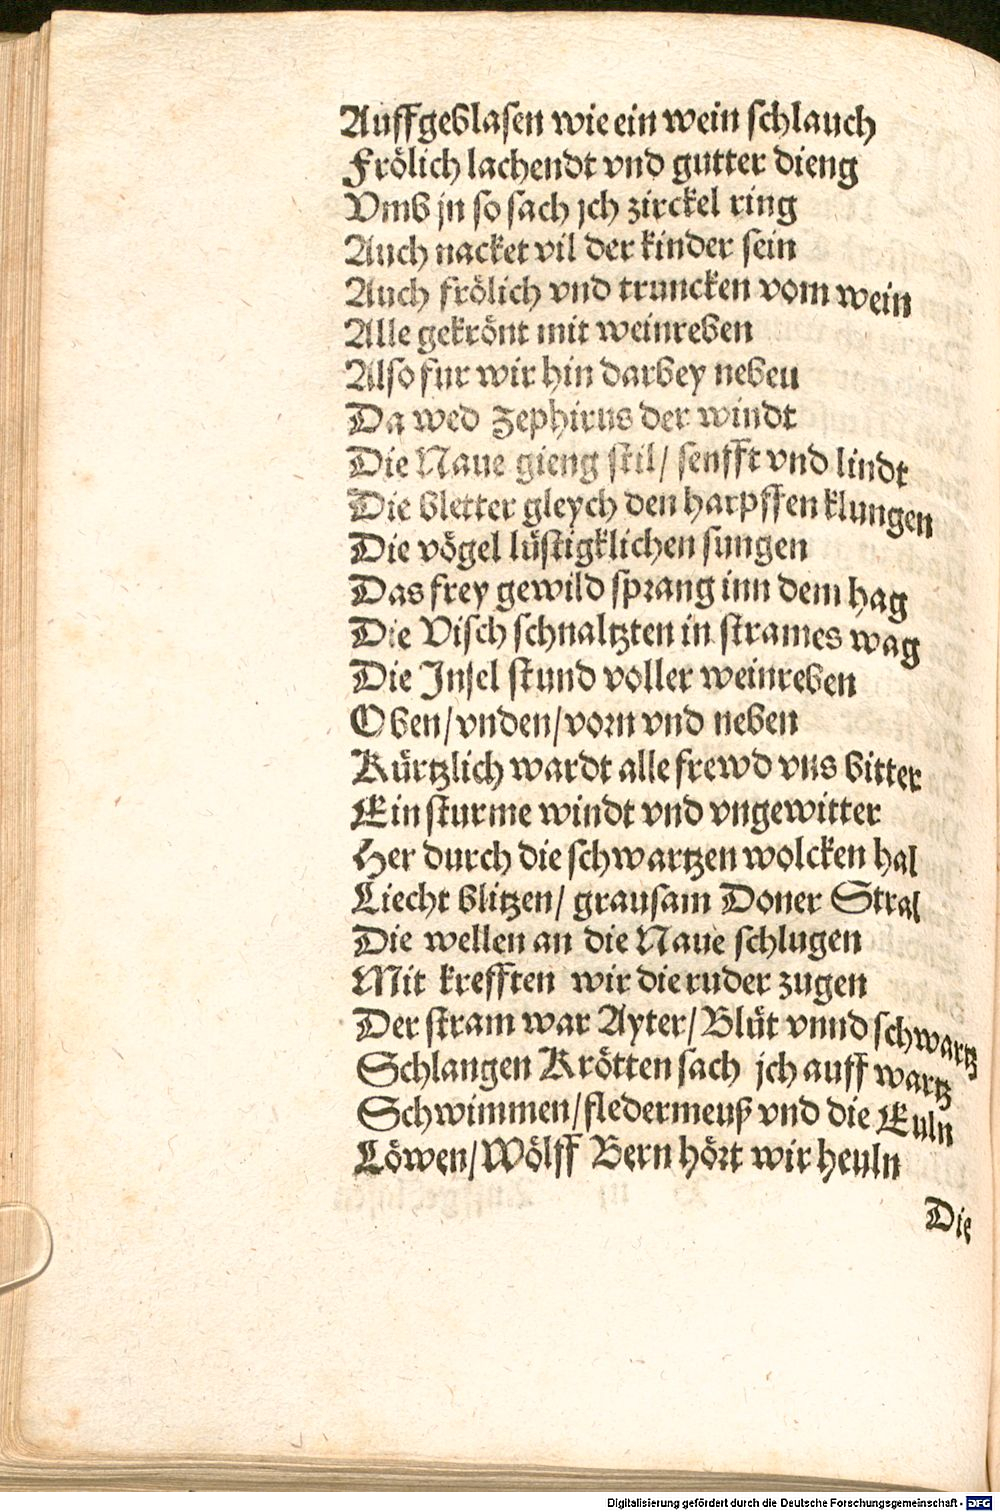 Auffgeblasen wie ein wein schlauch
Frölich lachendt vnd gutter dieng
Vmb jn so sach jch zirckel ring
Auch nacket vil der kinder sein
Auch frölich vnd truncken vom wein
Alle gekrönt mit weinreben
Also fur wir hin darbey neben
Da wed Zephirus der windt
Die Naue gieng stil/ senfft vnd lindt
Die bletter gleych den harpffen klungen
Die vögel lüstigklichen sungen
Das frey gewild sprang inn dem hag
Die Visch schnaltzten in strames wag
Die Jnsel stund voller weinreben
Oben/vnden/vorn vnd neben
Kürtzlich wardt alle frewd vns bitter
Ein sturme windt vnd vngewitter
Her durch die schwartzen wolcken hal
Liecht blitzen/ grausam Doner Stral
Die wellen an die Naue schlugen
Mit krefften wir die ruder zugen
Der stram war Ayter/Blüt vnnd schwartz
Schlangen Krötten sach jch auff wartz
Schwimmen/fledermeuß vnd die Euln
Löwen/Wölff Bern hört wir heuln
Die
Digitalisierung gefördert durch die Deutsche Forschungsgemeinschaft - DFG